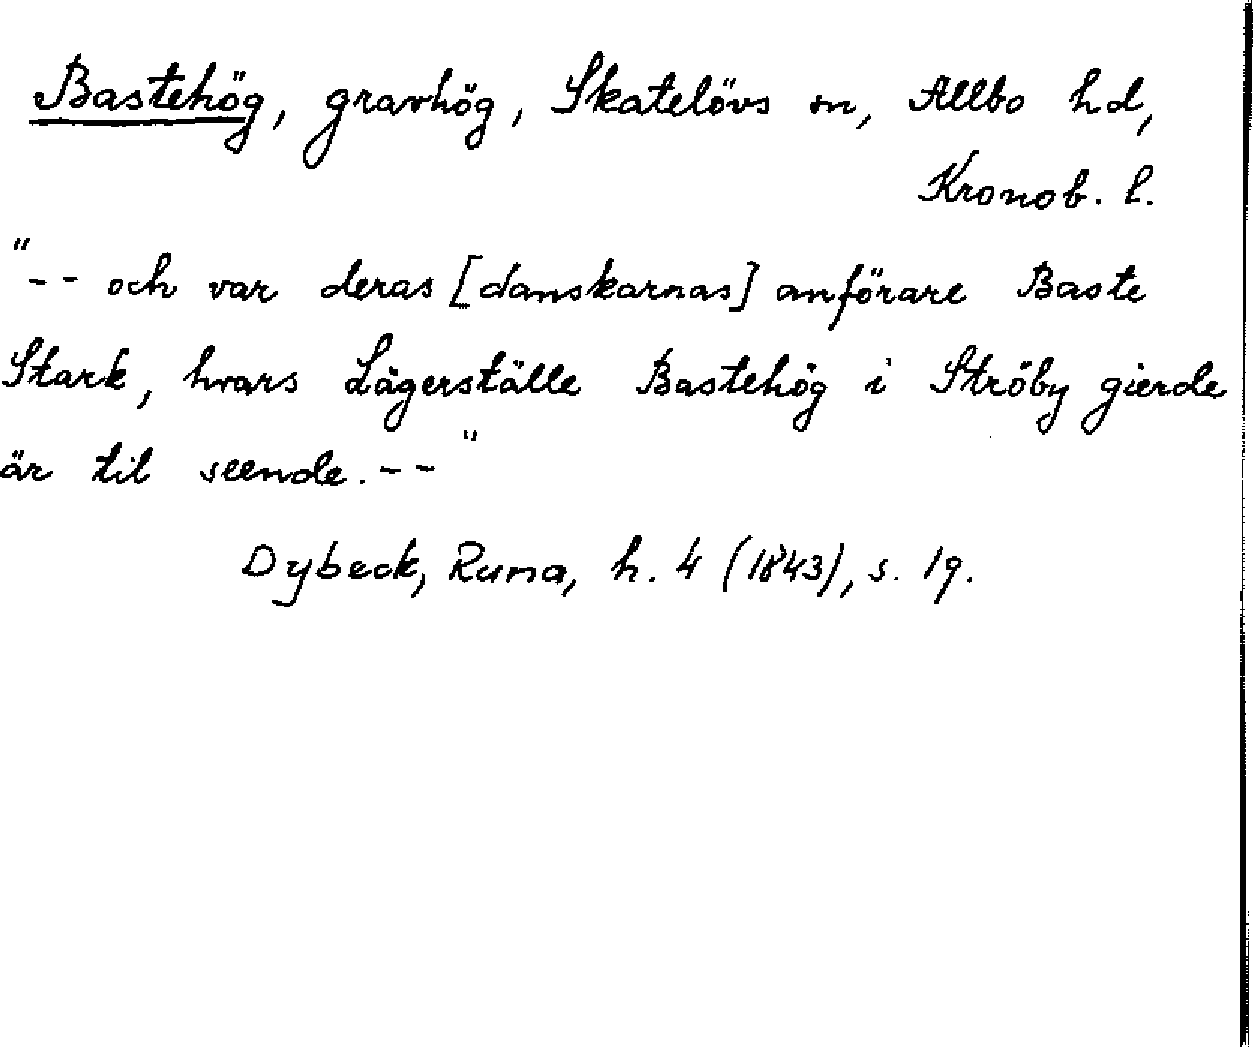 Bastehög, gravhög, Skatelövs sn, Allbo hd,
Kronob. l.
"-- och var deras [danskarnas] anförare Baste
Stark, hvars Lägerställe Bastehög i Ströby gierde
är til seende. --"
Dybeck, Runa, h. 4 (1843), s. 19.